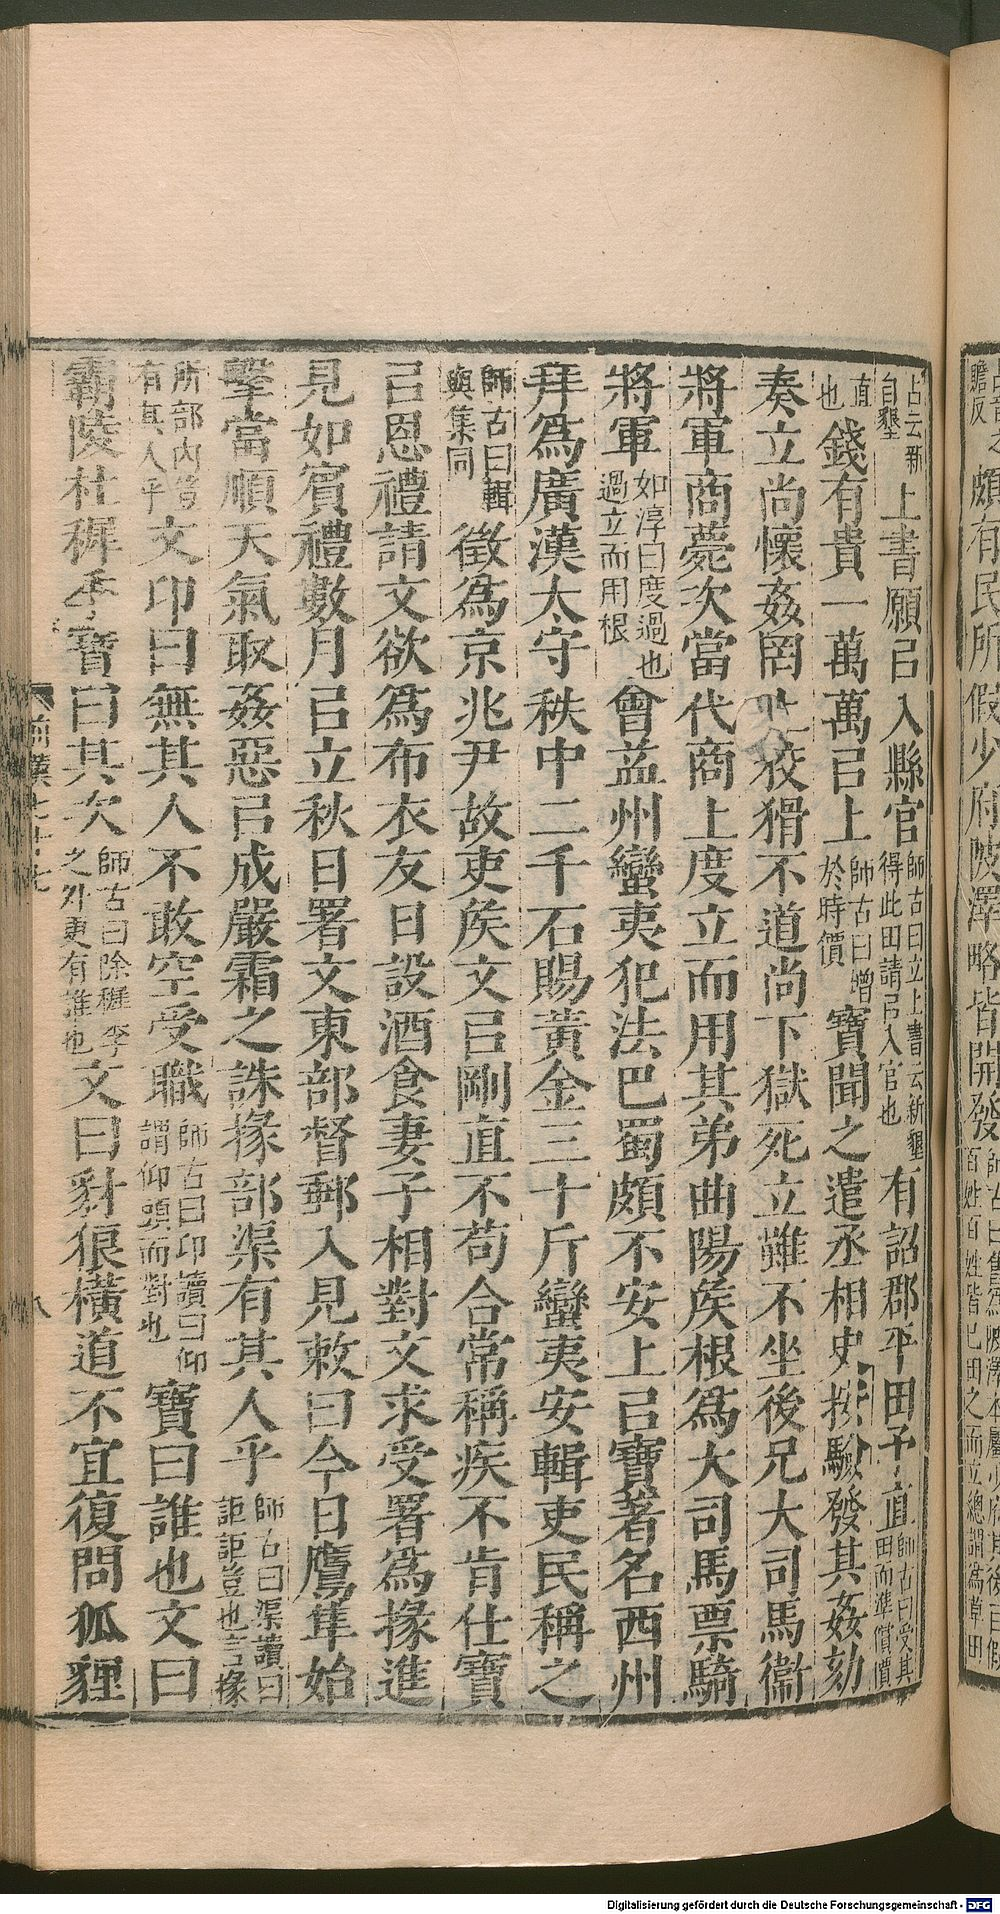 占云新自墾上書願㠯入縣官師古曰立上書云新墾得此田請㠯入官也有詔郡平田予直師古曰受其田而準償價
直也錢有貴一萬萬㠯上師古曰增於時價寶聞之遣丞相史按驗發其姦劾
奏立尚懷姦罔上狡猾不道尚下獄死立雖不坐後兄大司馬衞
將軍商薨次當代商上度立而用其弟曲陽矦根爲大司馬票騎
將軍如淳曰度過也過立而用根會益州蠻夷犯法巴蜀頗不安上㠯寶著名西州
拜爲廣漢太守秩中二千石賜黃金三十斤蠻夷安輯吏民稱之
師古曰輯與集同徵爲京兆尹故吏矦文㠯剛直不苟合常稱疾不肯仕寶
㠯恩禮請文欲爲布衣友日設酒食妻子相對文求受署爲掾進
見如賓禮數月㠯立秋日署文東部督郵入見敕曰今日鷹隼始
擊當順天氣取姦惡㠯成嚴霜之誅掾部渠有其人乎師古曰渠讀曰詎詎豈也言掾
所部內豈有其人乎文卬曰無其人不敢空受職師古曰卬讀曰仰謂仰頭而對也寶曰誰也文曰
霸陵杜穉季寶曰其次師古曰除穉季之外更有誰也文曰豺狼橫道不宜復問狐貍
前漢七十七
八
頗有民所假少府陂澤略皆開發
Digitalisierung gefördert durch die Deutsche Forschungsgemeinschaft - DFG